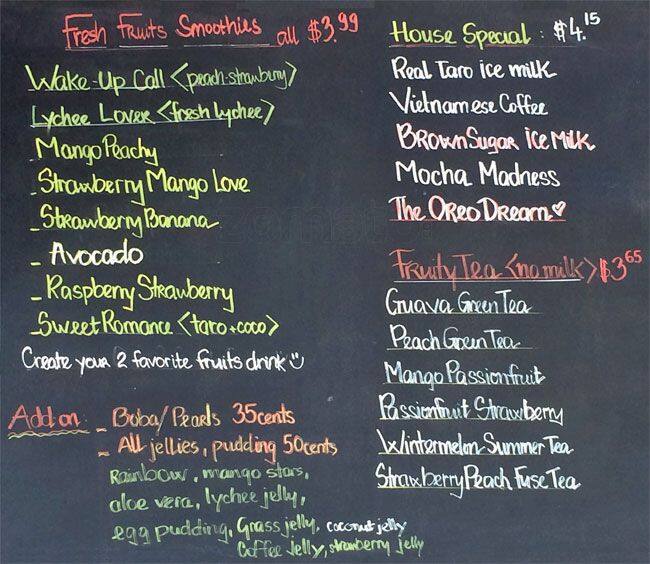 Fresh Fruits Smoothies all $3.99
Wake-Up Call <peach-strawbury>
Lychee Lover <fresh lychee>
- Mango Peachy
- Strawberry Mango Love
- Strawberry Banana
- Avocado
- Raspberry Strawberry
- Sweet Romance <taro+coco>
Create your 2 favorite fruits drink
Add on - Boba/Pearls 35cents
- All jellies, pudding 50cents
Rainbow, mango stars,
aloe vera, lychee jelly,
egg pudding, Grass jelly, coconut jelly
Coffee Jelly, strawberry jelly
House Special : $4.15
Real Taro ice milk
Vietnamese Coffee
Brown Sugar ice Milk
Mocha Madness
The Oreo Dream
Fruity Tea <no milk> $3.65
Guava Green Tea
Peach Green Tea
Mango Passionfruit
Passionfruit Strawberry
Wintermelon Summer Tea
Strawberry Peach Fuse Tea